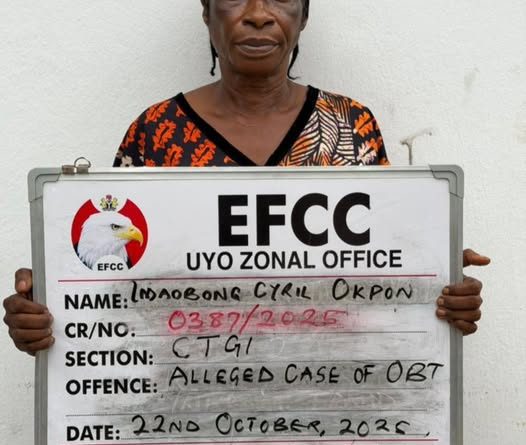 EFCC
EFCC
UYO ZONAL OFFICE
NAME: IMAOBONG CYRIL OKPON
CR/NO. 0387/2025
SECTION: CTGI
OFFENCE: ALLEGED CASE OF OBT
DATE: 22ND OCTOBER, 2025